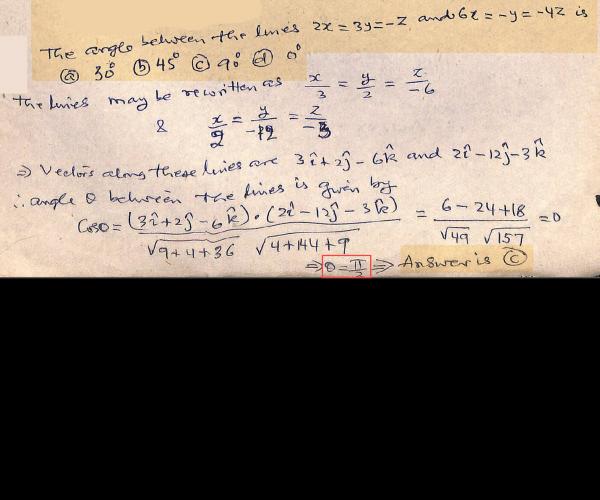 The angle between the lines 2x = 3y = -z and 6x = -y = -4z is
(a) 30° (b) 45° (c) 90° (d) 0°
The lines may be rewritten as x/3 = y/2 = z/-6
& x/2 = y/-12 = z/-3
⇒ Vectors along these lines are 3î + 2ĵ - 6k̂ and 2î - 12ĵ - 3k̂
∴ angle θ between the lines is given by
Cosθ = (3î + 2ĵ - 6k̂) • (2î - 12ĵ - 3k̂) / √9+4+36 √4+144+9 = 6 - 24 + 18 / √49 √157 = 0
⇒ θ = π/2 ⇒ Answer is (c)